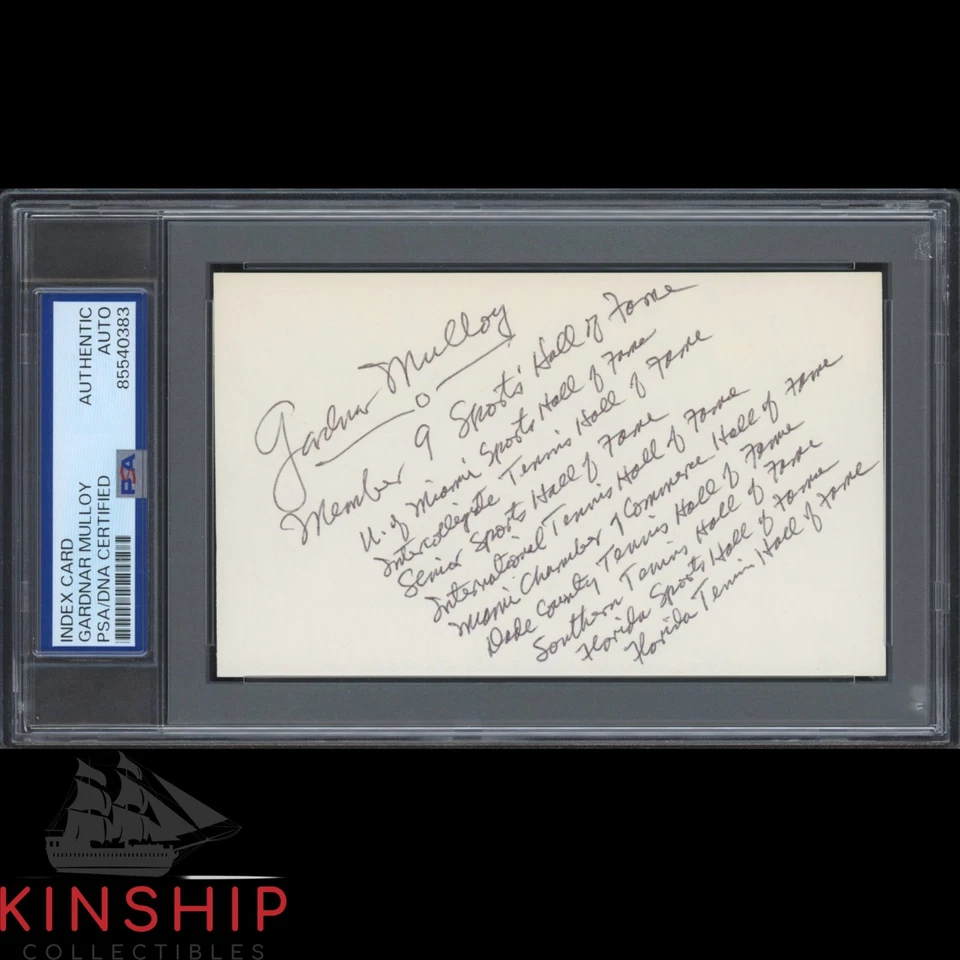 INDEX CARD
GARDNAR MULLOY
PSA/DNA CERTIFIED
AUTHENTIC
AUTO
85540383
PSA
Gardnar Mulloy
Member 9 Sports' Hall of Fame
U. of Miami Sports Hall of Fame
Intercollegiate Tennis Hall of Fame
Senior Sports Hall of Fame
International Tennis Hall of Fame
Miami Chamber of Commerce Hall of Fame
Dade County Tennis Hall of Fame
Southern Tennis Hall of Fame
Florida Sports Hall of Fame
Florida Tennis Hall of Fame
KINSHIP
COLLECTIBLES